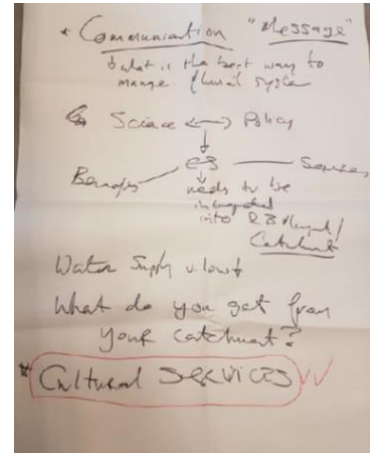 * Communication "Message"
↳ what is the best way to
manage fluvial system
Science ←→ Policy
Benefits — — Services
needs to be
integrated
into RB /
Catchment
Water Supply v. low
What do you get from
your catchment?
* Cultural SERVICES ✓✓